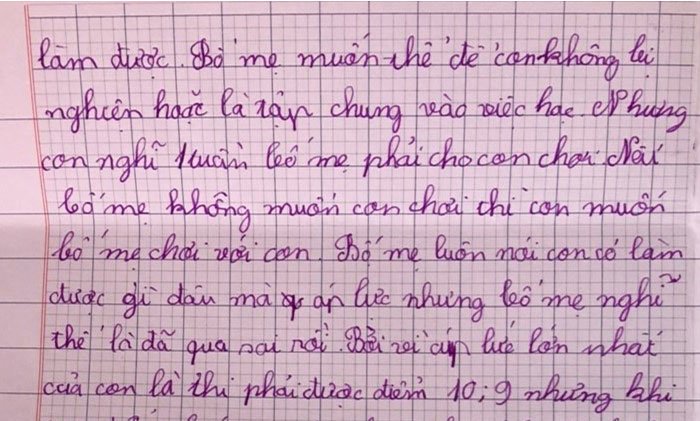 làm được. Bố mẹ muốn thế để con không bị
nghiện hoặc là tập chung vào việc học. Nhưng
con nghĩ 1 tuần bố mẹ phải cho con chơi. Nếu
bố mẹ không muốn con chơi thì con muốn
bố mẹ chơi với con. Bố mẹ luôn nói con có làm
được gì đâu mà áp lực nhưng bố mẹ nghĩ
thế là đã quá sai rồi. Bởi vì áp lực lớn nhất
của con là thi phải được điểm 10; 9 nhưng khi